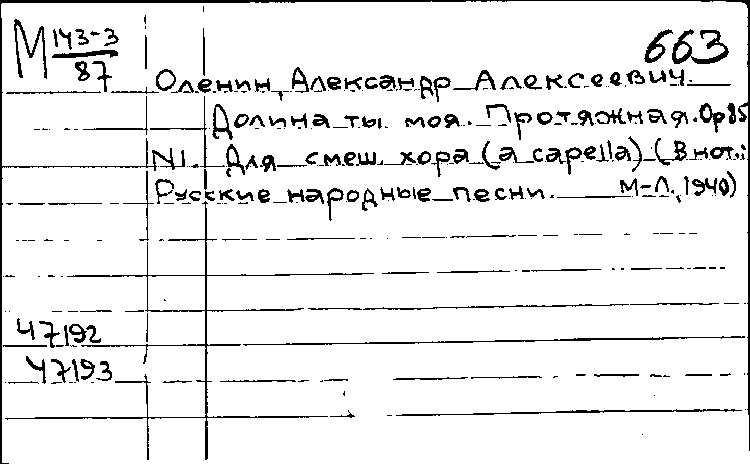 М 143-3 663
87
Оленин, Александр Алексеевич.
Долина ты моя. Протяжная. Ор 85
N1. Для смеш. хора (a capella) (В нот.:
Русские народные песни. М-Л., 1940)
47192
47193